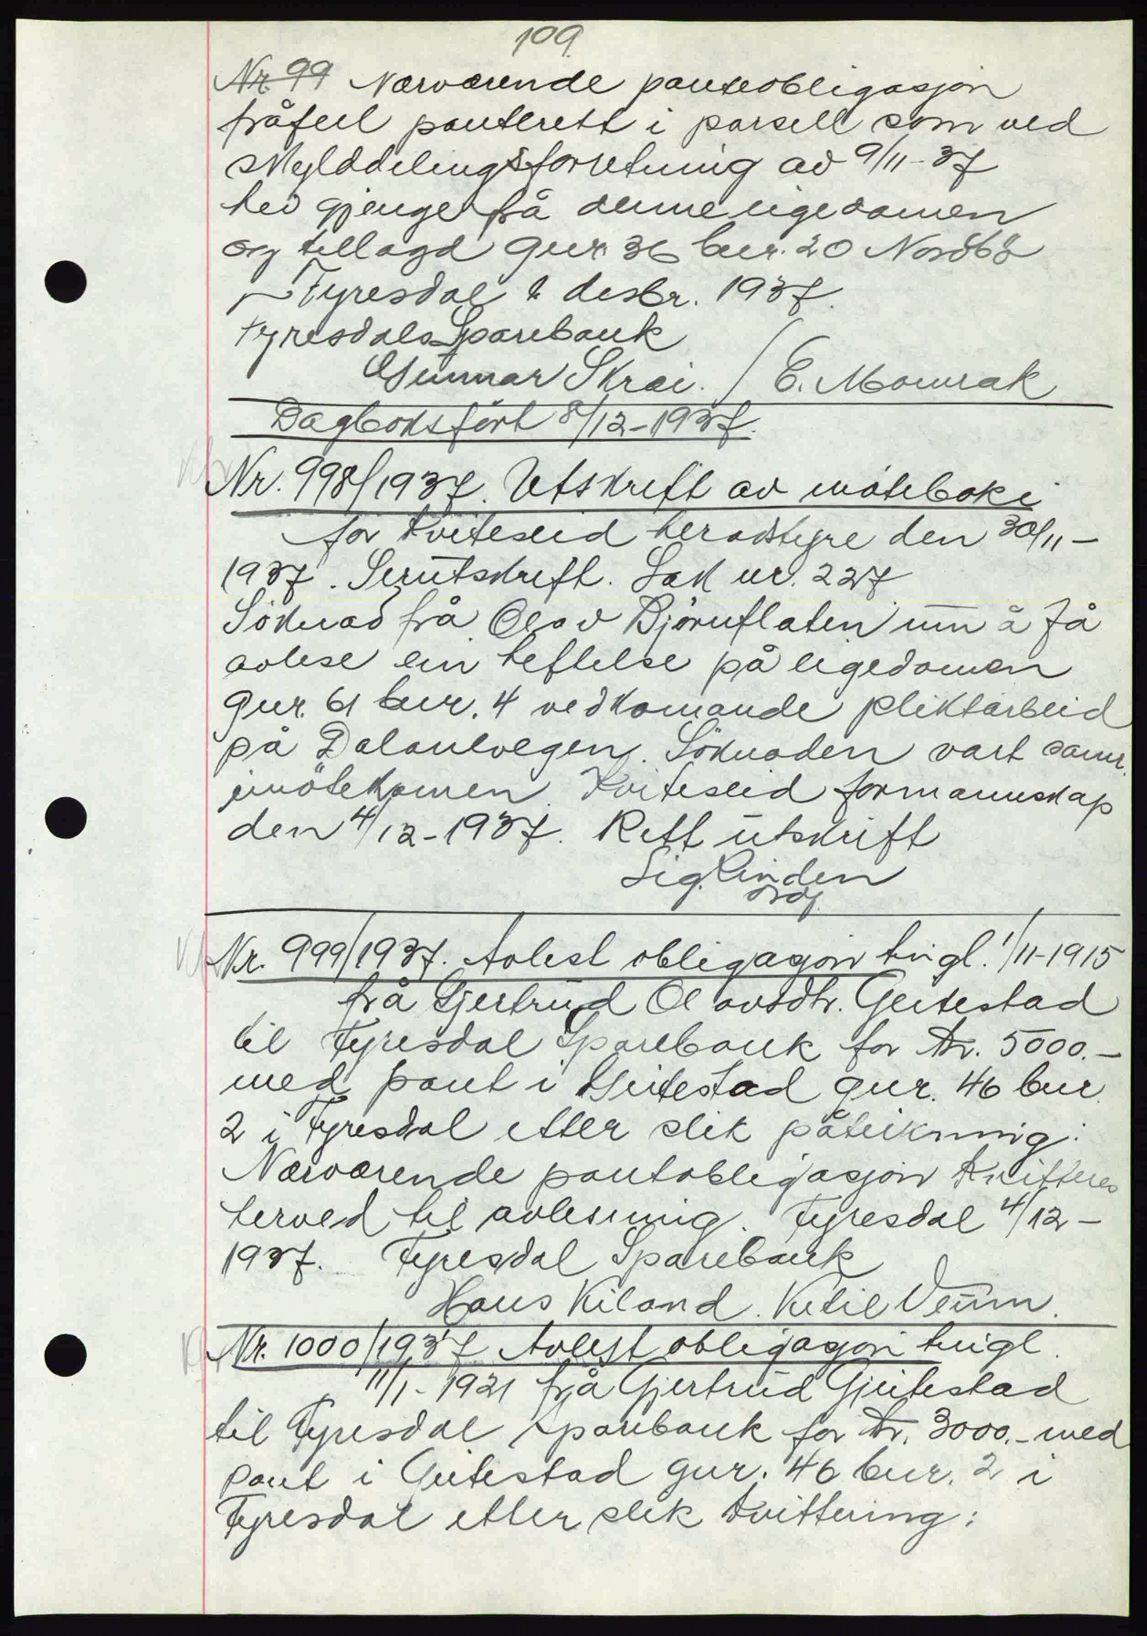 109
Nr 99 Nærværende panteobligasjon
fråfell panterett i parsell som ved
skylddelingsforretning av 9/11-37
hev gjenge frå denne eigedomen
og tillagd gnr. 36 bnr. 20 Nordbö
Fyresdal 2 desbr. 1937.
Fyresdals Sparebank
Gunnar Skrei. / E. Momrak
Dagboksfört 8/12-1937.
Nr. 998/1937. Utskrift av möteboki
for Kviteseid heradstyre den 30/11-
1937. Serutskrift. Sak nr. 227
Söknad frå Olav Björnflaten um å få
avlese ein heftelse på eigedomen
gnr. 61 bnr. 4 vedkomande pliktarbeid
på Dalanevegen. Söknaden vart samr.
imötekomen. Kviteseid formannskap
den 4/12-1937. Rett utskrift
Sig. Linden
Nr. 999/1937. Avlest obligasjon tingl. 1/11-1915
frå Gjertrud Olavsdtr. Geitestad
til Fyresdal Sparebank for Kr. 5000.-
med pant i Geitestad gnr. 46 bnr.
2 i Fyresdal etter slik påteikning:
Nærværende pantobligasjon kvitteres
herved til avlesning. Fyresdal 4/12-
1937. Fyresdal Sparebank
Hans Kiland. Ketil Veum.
Nr. 1000/1937 Avlest obligasjon tingl.
11/1-1921 frå Gjertrud Gjeitestad
til Fyresdal Sparebank for Kr. 3000.- med
pant i Geitestad gnr. 46 bnr. 2 i
Fyresdal etter slik kvittering: